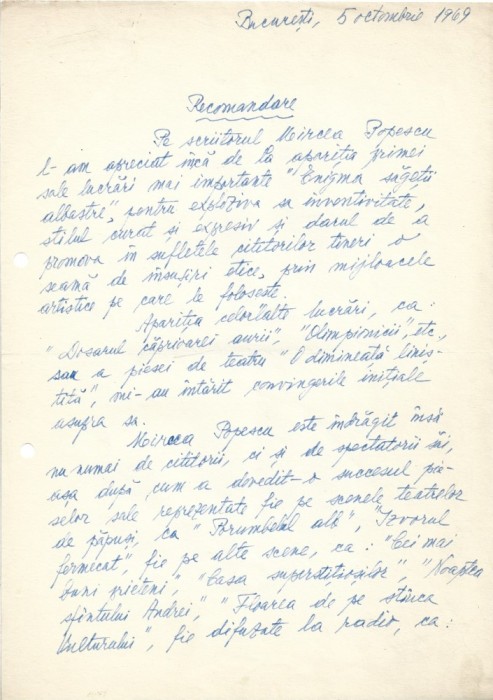 București, 5 octombrie 1969
Recomandare
Pe scriitorul Mircea Popescu
l-am apreciat încă de la apariția primei
sale lucrări mai importante "Enigma săgeții
albastre", pentru exploziva sa inventivitate,
stilul curat și expresiv și darul de a
promova în sufletele cititorilor tineri o
seamă de însușiri etice, prin mijloacele
artistice pe care le folosește.
Apariția celorlalte lucrări, ca:
"Dosarul căprioarei aurii", "Olimpionicii", etc,
sau a piesei de teatru "O dimineață liniș-
tită", mi-au întărit convingerile inițiale
asupra sa.
Mircea Popescu este îndrăgit însă
nu numai de cititorii, ci și de spectatorii săi,
așa după cum a dovedit-o succesul pie-
selor sale reprezentate fie pe scenele teatrelor
de păpuși, ca "Porumbelul alb", "Izvorul
fermecat", fie pe alte scene, ca: "Cei mai
buni prieteni", "Casa superstițioșilor", "Noaptea
sfîntului Andrei", "Floarea de pe stînca
Vulturului", fie difuzate la radio, ca: